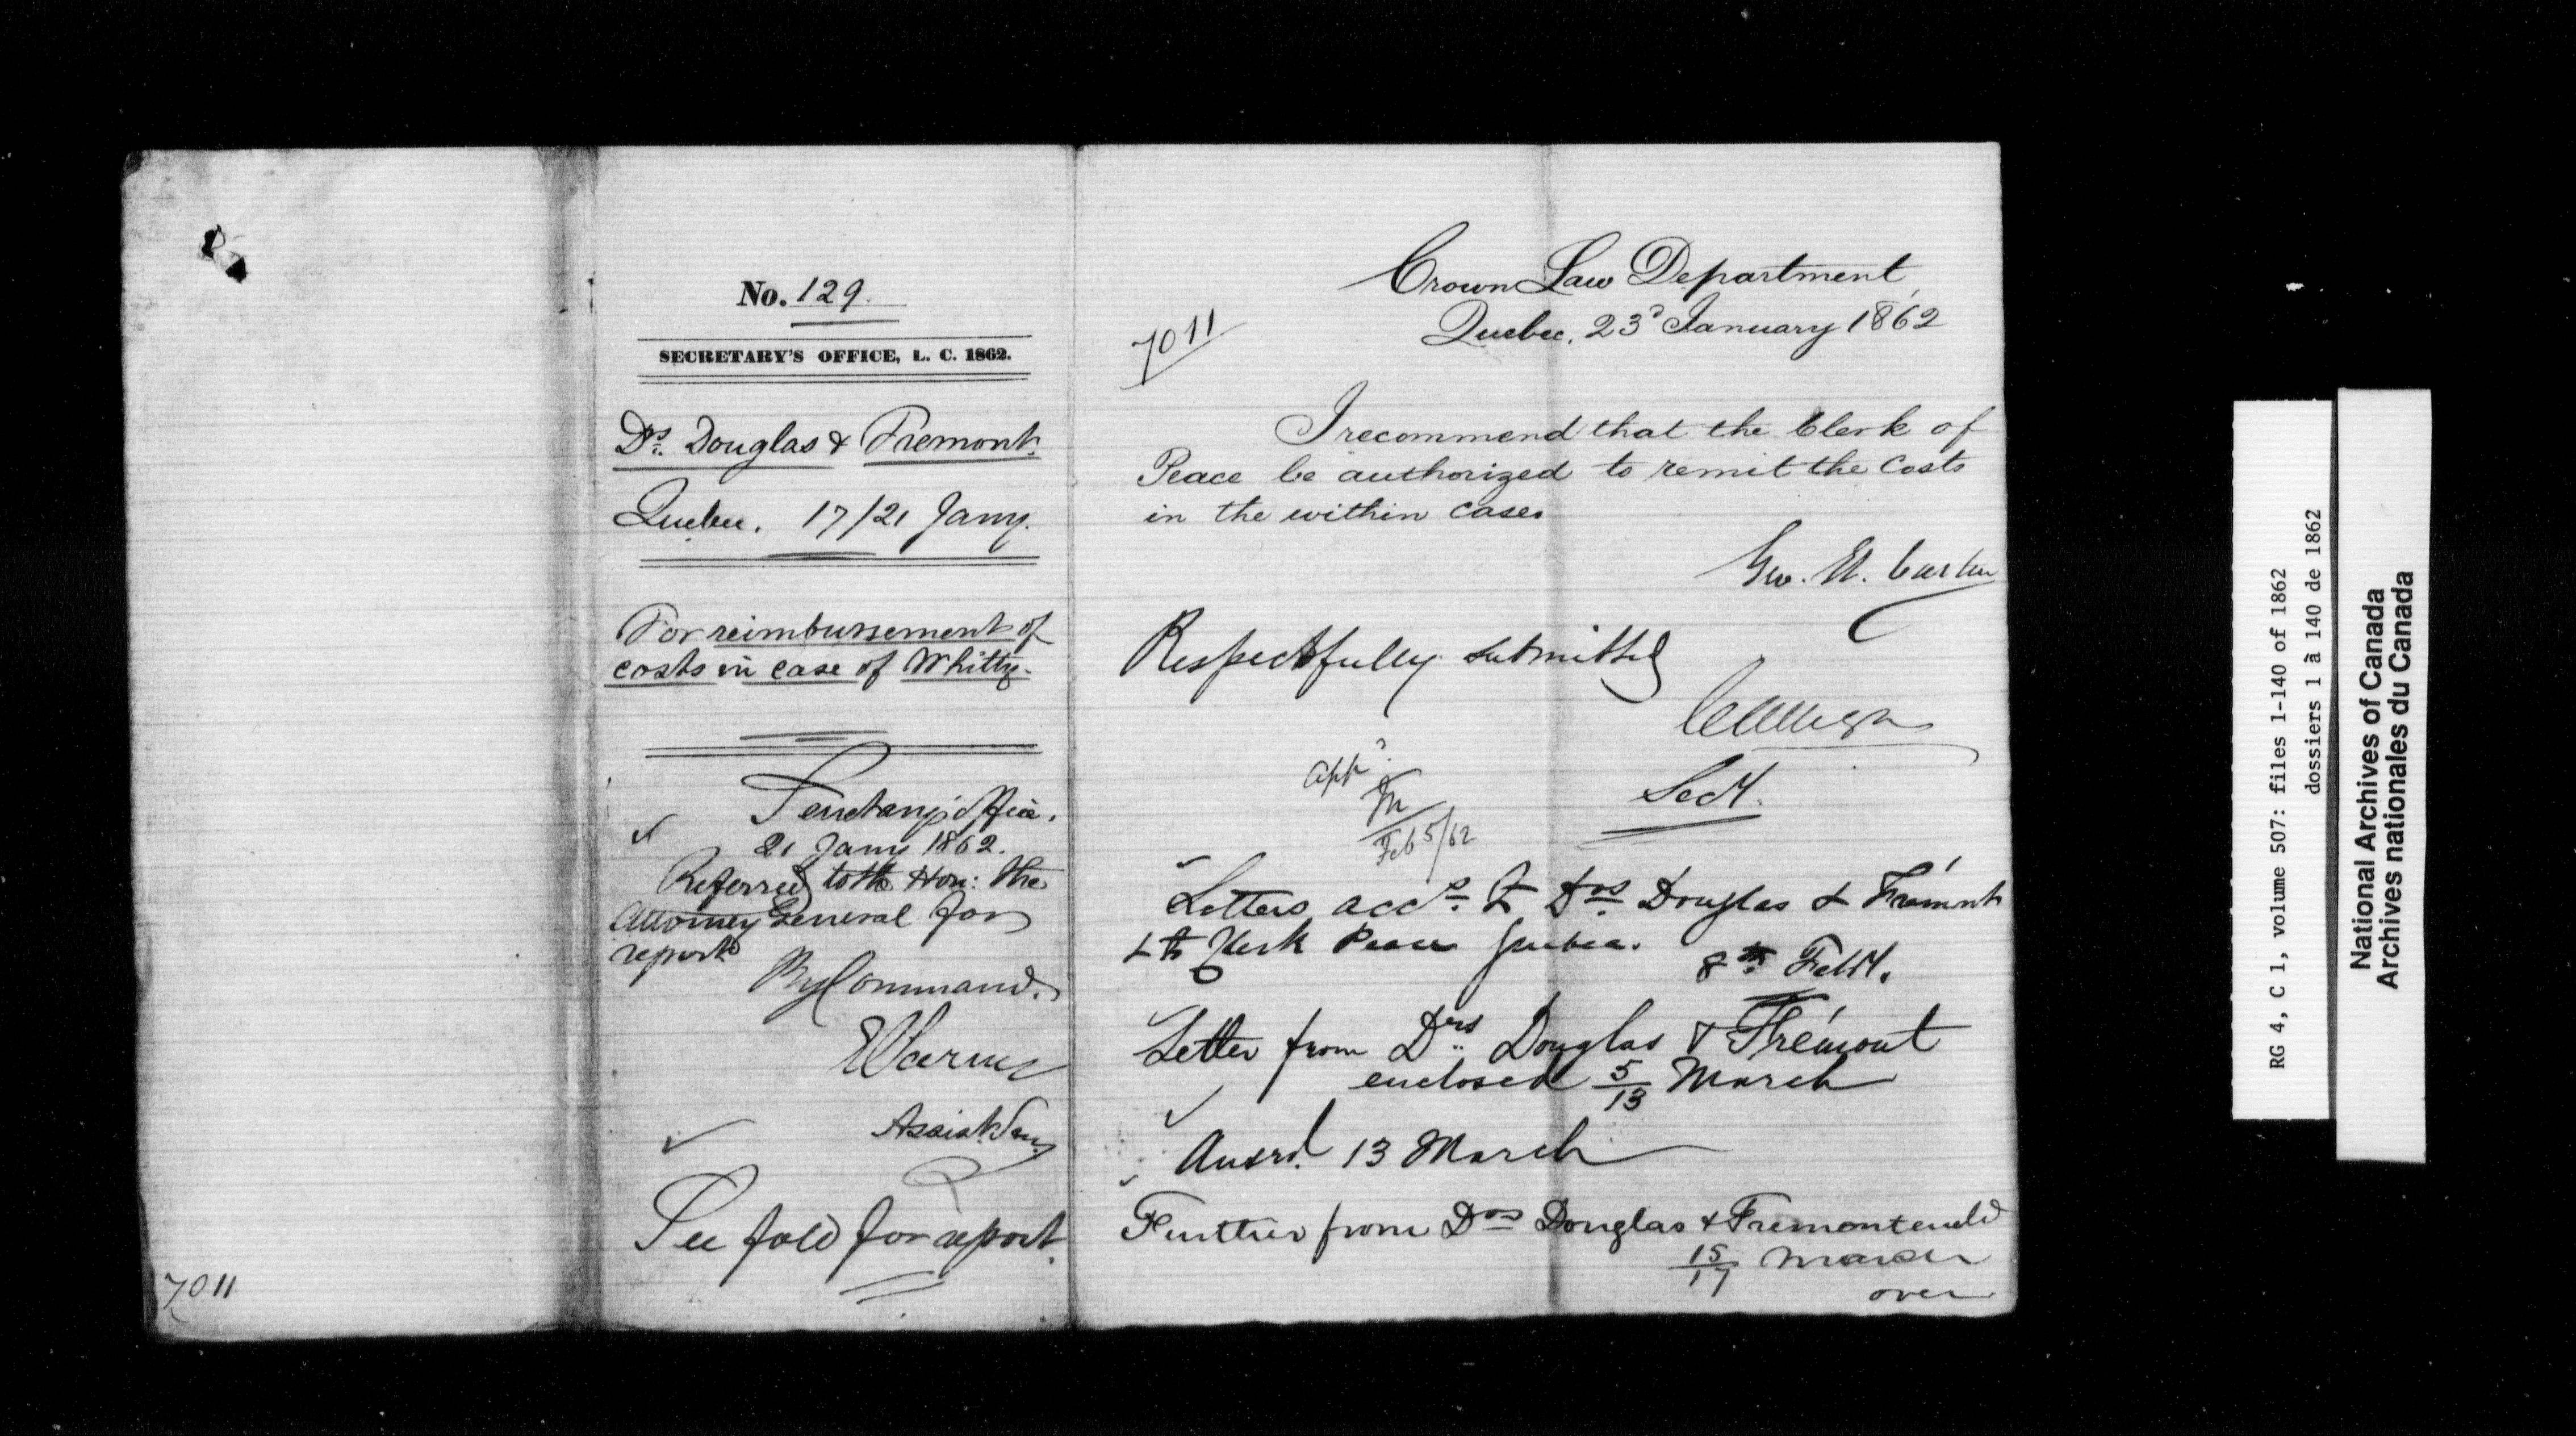 No. 129.
SECRETARY'S OFFICE, L. C. 1862.
Drs. Douglas & Fremont.
Quebec. 17/21 Jany.
For reimbursement of
costs in case of Whitty.
Secretary's Office.
21 Jany 1862.
Referred to the Hon: the
Attorney General for
report
By Command.
Assist. Secy
See fold for report.
7011
7011
Crown Law Department,
Quebec, 23d January 1862
I recommend that the Clerk of
Peace be authorized to remit the Costs
in the within case.
Geo. Et. Cartier
Respectfully submitted
Secy.
appd.
Feb 5/62
Letters accy. to Drs Douglas & Frémont
& to Clerk Peace Quebec.
8th Feby.
Letter from Drs. Douglas & Frémont
enclosed 5/13 March
Answd. 13 March
Further from Drs Douglas & Fremont encld
15/17 March
over
RG 4, C 1, volume 507: files 1-140 of 1862
dossiers 1 à 140 de 1862
National Archives of Canada
Archives nationales du Canada